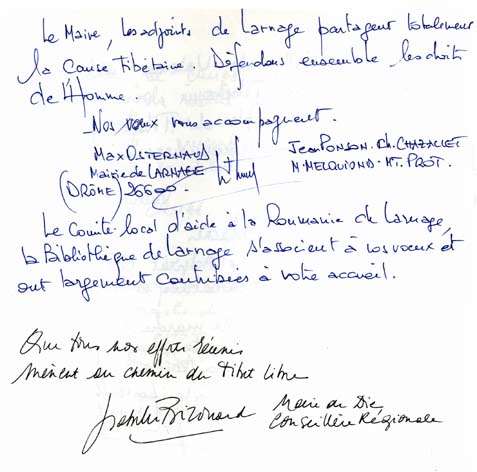 Le Maire, les adjoints de Larnage partagent totalement
la Cause Tibétaine. Défendons ensemble les droits
de l'Homme.
Nos voeux vous accompagnent.
Max OSTERNAUD
Mairie de LARNAGE
(DRÔME) 26600
Jean PONSON. Ch. CHAZALLET
N. MELQUIOND. MT. PROT.
Le Comité local d'aide à la Roumanie de Larnage,
la Bibliothèque de Larnage s'associent à vos voeux et
ont largement contribuées à votre accueil.
Que tous nos efforts réunis
mènent au chemin du Tibet libre
Maire de Die
Conseillère Régionale